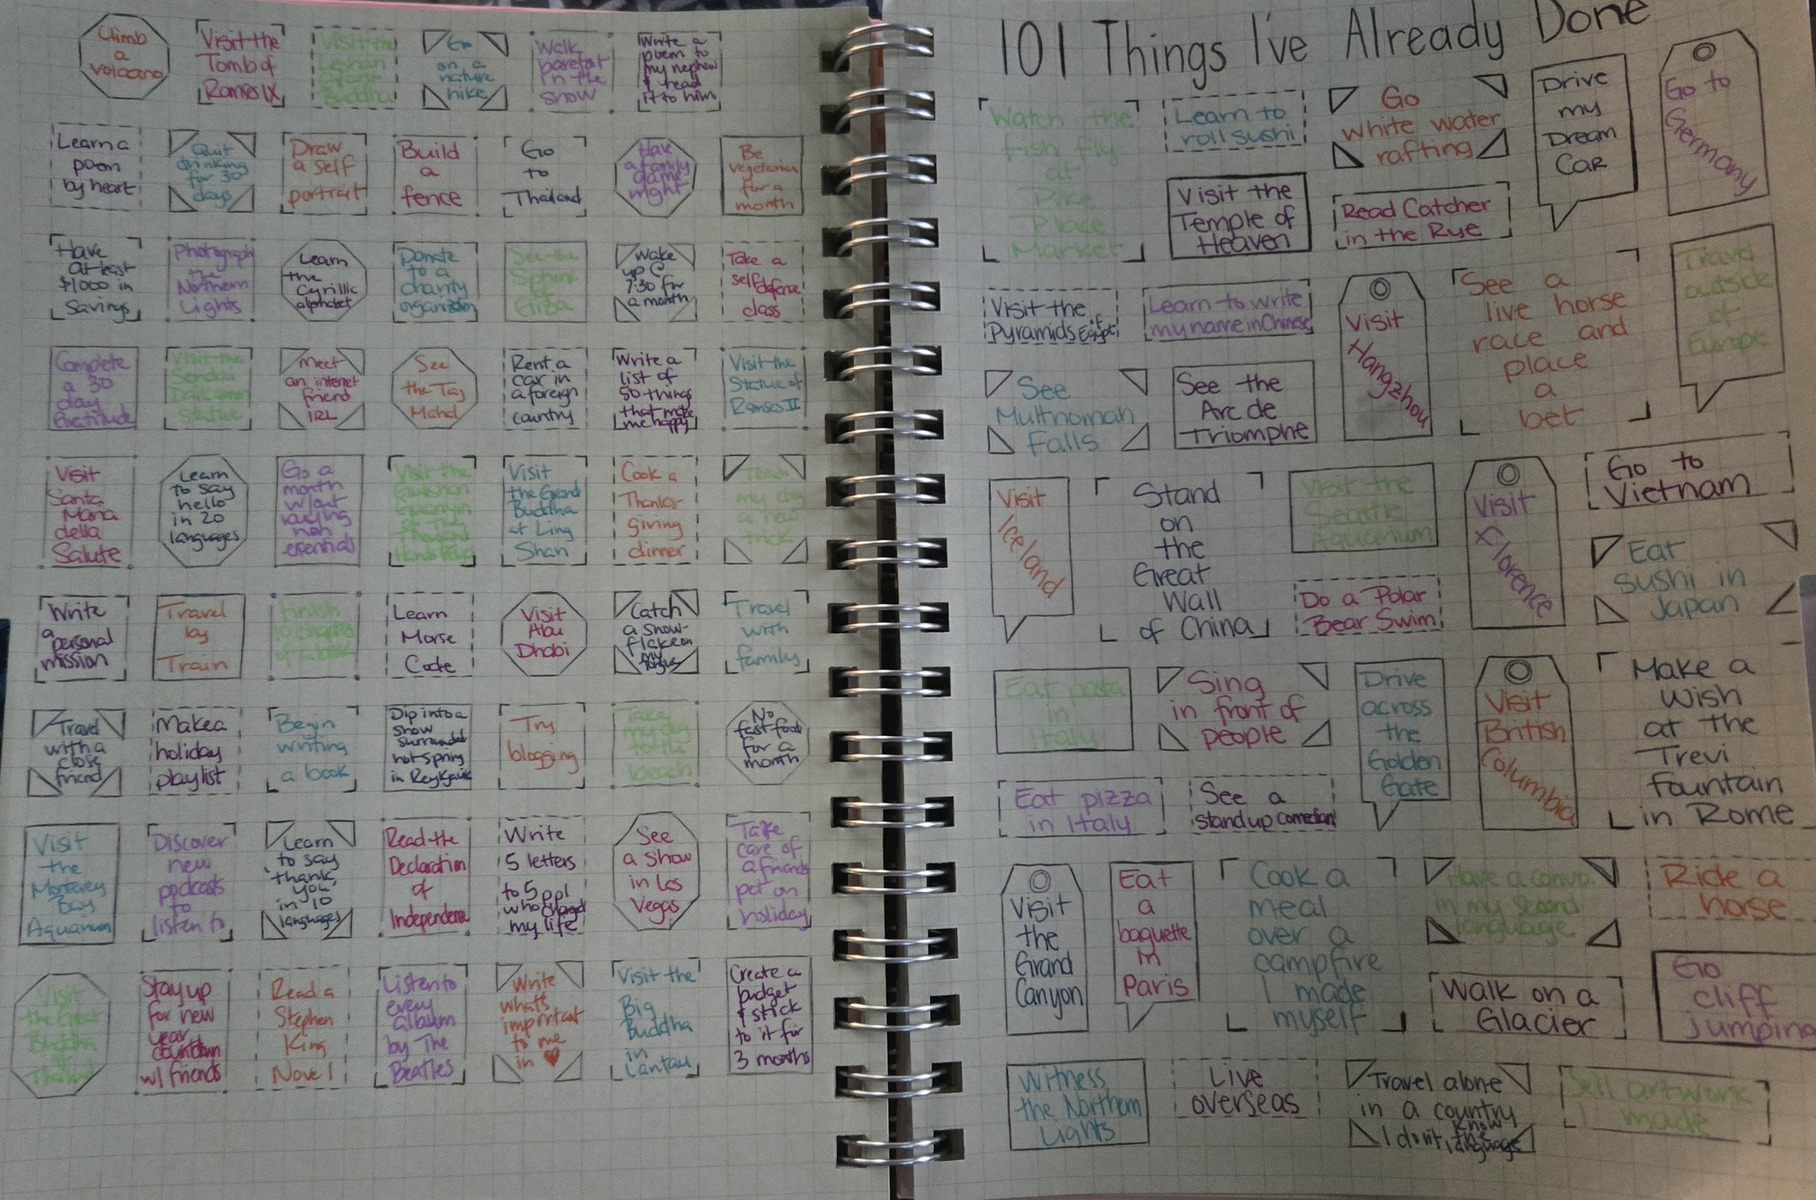 Climb
a
volcano
Visit the
Tomb of
Ramses IX
Visit the
Leshan
Giant
Buddha
Go
on a
nature
hike
Walk
barefoot
in the
snow
Write a
poem to
my nephew
& read
it to him
Learn a
poem
by heart
Quit
drinking
for 30
days
Draw
a self
portrait
Build
a
fence
Go
to
Thailand
Have
a family
game
night
Be
vegetarian
for a
month
Have
at least
$1000 in
Savings
Photograph
the
Northern
Lights
Learn
the
Cyrillic
alphabet
Donate
to a
charity
organization
See the
Sphinx
Giza
Wake
up @
7:30 for
a month
Take a
self defense
class
Complete
a 30
day
Gratitude
Visit the
Statue
Meet
an internet
friend
IRL
See
the Taj
Mahal
Rent a
car in
a foreign
country
Write a
list of
50 things
that make
me happy
Visit the
Statue of
Ramses II
Visit
Santa
Maria
della
Salute
Learn
to say
hello
in 20
languages
Go a
month
w/out
buying
non
esentials
Visit the
Guanyin
of the
Thousand
Visit
the Grand
Buddha
at Ling
Shan
Cook a
Thanks-
giving
dinner
Teach
my dog
a new
trick
Write
a personal
mission
Travel
by
Train
Finish
of a book
Learn
Morse
Code
Visit
Abu
Dhabi
Catch
a snow-
flake on
my
tongue
Travel
with
family
Travel
with a
close
friend
Make a
holiday
playlist
Begin
writing
a book
Dip into a
snow
surrounded
hot spring
in Reykjavik
Try
blogging
Take
my dog
to the
beach
No
fast food
for a
month
Visit
the
Monterey
Bay
Aquarium
Discover
new
podcasts
to
listen to
Learn
to say
'thank
you'
in 10
languages
Read the
Declaration
of
Independence
Write
5 letters
to 5 ppl
who changed
my life
See
a show
in Las
Vegas
Take
care of
a friends
pet on
holiday
Visit
the Great
Buddha
of
Thailand
Stay up
for new
year
countdown
w/ friends
Read a
Stephen
King
Novel
Listen to
every
album
by The
Beatles
Write
what's
important
to me
in ♥
Visit the
Big
Buddha
in
Lantau
Create a
budget
& stick
to it for
3 months
101 Things I've Already Done
Watch the
fish fly
at
Pike
Place
Market
Learn to
roll sushi
Go
white water
rafting
Drive
my
Dream
Car
Go to
Germany
Visit the
Temple of
Heaven
Read Catcher
in the Rye
Visit the
Pyramids Egypt
Learn to write
my name in Chinese
Visit
Hangzhou
See a
live horse
race and
place
a
bet
Travel
outside
of
Europe
See
Multnomah
Falls
See the
Arc de
Triomphe
Visit
Iceland
Stand
on
the
Great
Wall
of China
Visit the
Seattle
Aquarium
Visit
Florence
Go to
Vietnam
Do a Polar
Bear Swim
Eat
sushi in
Japan
Eat pasta
in
Italy
Sing
in front of
people
Drive
across
the
Golden
Gate
Visit
British
Columbia
Make a
Wish
at the
Trevi
Fountain
in Rome
Eat pizza
in Italy
See a
standup comedian
Visit
the
Grand
Canyon
Eat
a
baguette
in
Paris
Cook a
meal
over a
campfire
I made
myself
Have a convo
in my second
language
Ride a
horse
Walk on a
Glacier
Go
cliff
jumping
Witness
the Northern
Lights
Live
overseas
Travel alone
in a country
I don't know
the language
Sell artwork
I made